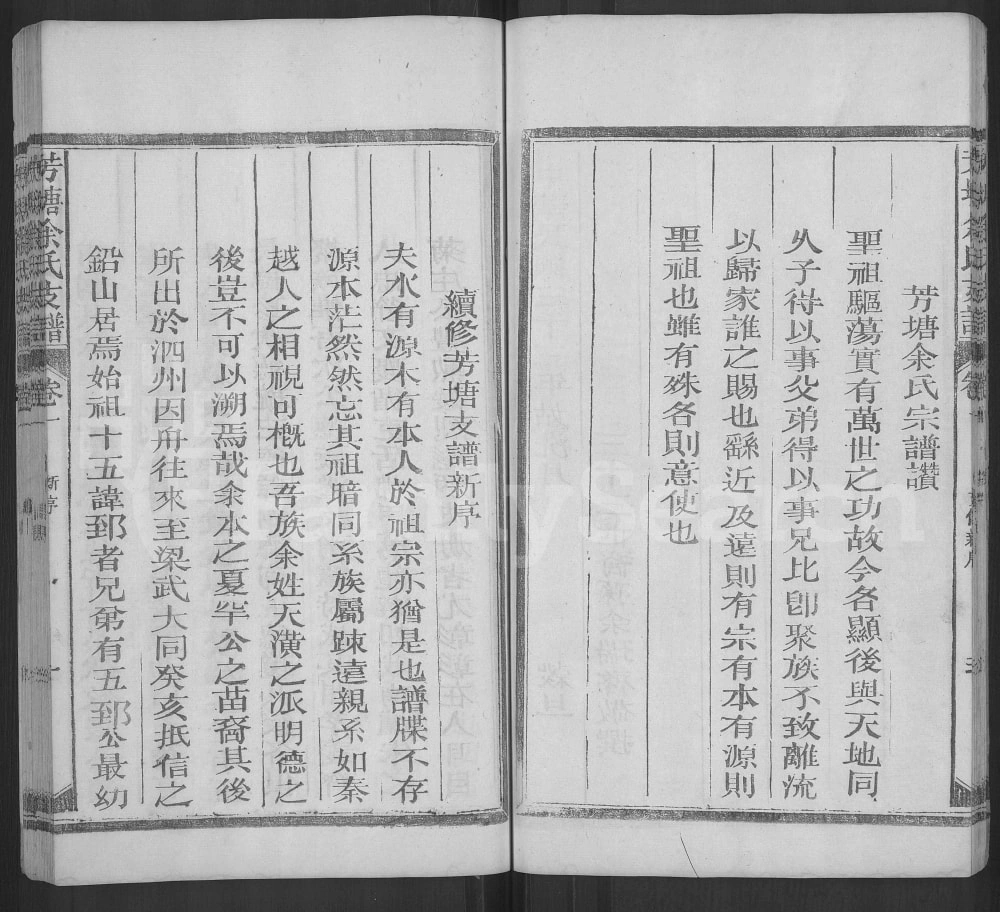 芳塘余氏宗譜讚
聖祖驅蕩實有萬世之功故今各顯後與天地同
久子待以事父弟得以事兄比卽聚族不致離流
以歸家誰之賜也繇近及遠則有宗有本有源則
聖祖也雖有殊各則意使也
續修芳塘支譜新序
夫水有源木有本人於祖宗亦猶是也譜牒不存
源本茫然然忘其祖暗同系族屬踈遠親系如秦
越人之相視可槪也吾族余姓天潢之派明德之
後豈不可以溯焉哉余本之夏罕公之苗裔其後
所出於泗州因舟往來至梁武大同癸亥抵信之
鉛山居焉始祖十五諱郅者兄弟有五郅公最幼
芳塘余氏支譜
卷一
新序
一